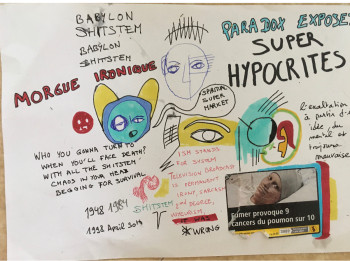 BABYLON
SHITSTEM
BABYLON
SHITSTEM
PARADOX EXPOSE
SUPER
HYPOCRITES
MORGUE IRONIQUE
SPIRITUAL
SUPER
MARKET
l'exaltation
à partir d'
idée du
mental est
toujours
mauvaise
WHO YOU GONNA TURN TO
WHEN YOU'LL FACE DEATH?
WITH ALL THE SHITSTEM
CHAOS IN YOUR HEAD
BEGGING FOR SURVIVAL
ISM STANDS
FOR SYSTEM
TELEVISION BROADCAST
IS PERMANENT
IRONY, SARCASM
AND DECEIT,
VOYEURISM
1948 1984
SHITSTEM
1998 Avril 2019
WRONG
Fumer provoque 9
cancers du poumon sur 10